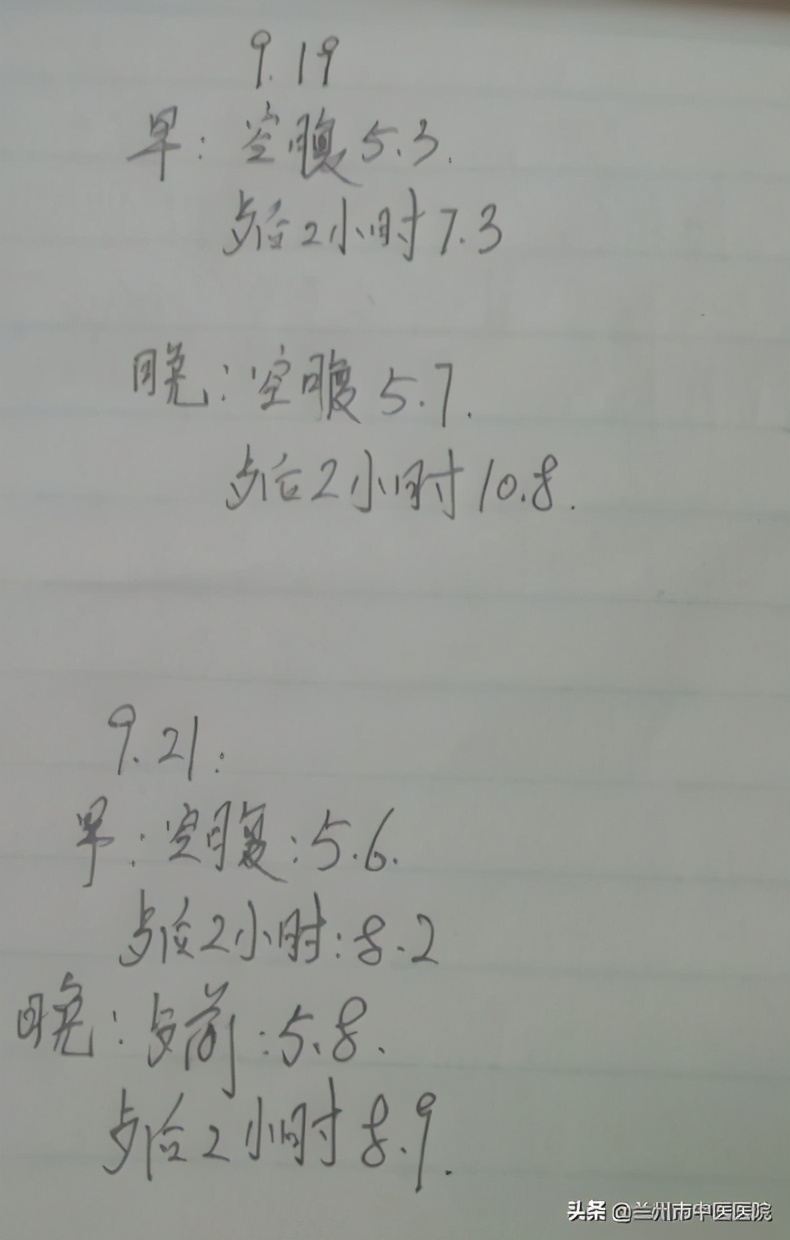 9.19
早: 空腹5.3.
歺后2小时7.3
晚: 空腹5.7.
歺后2小时10.8.
9.21:
早: 空腹: 5.6.
歺后2小时: 8.2
晚: 歺前: 5.8.
歺后2小时8.9.
头条 @兰州市中医医院